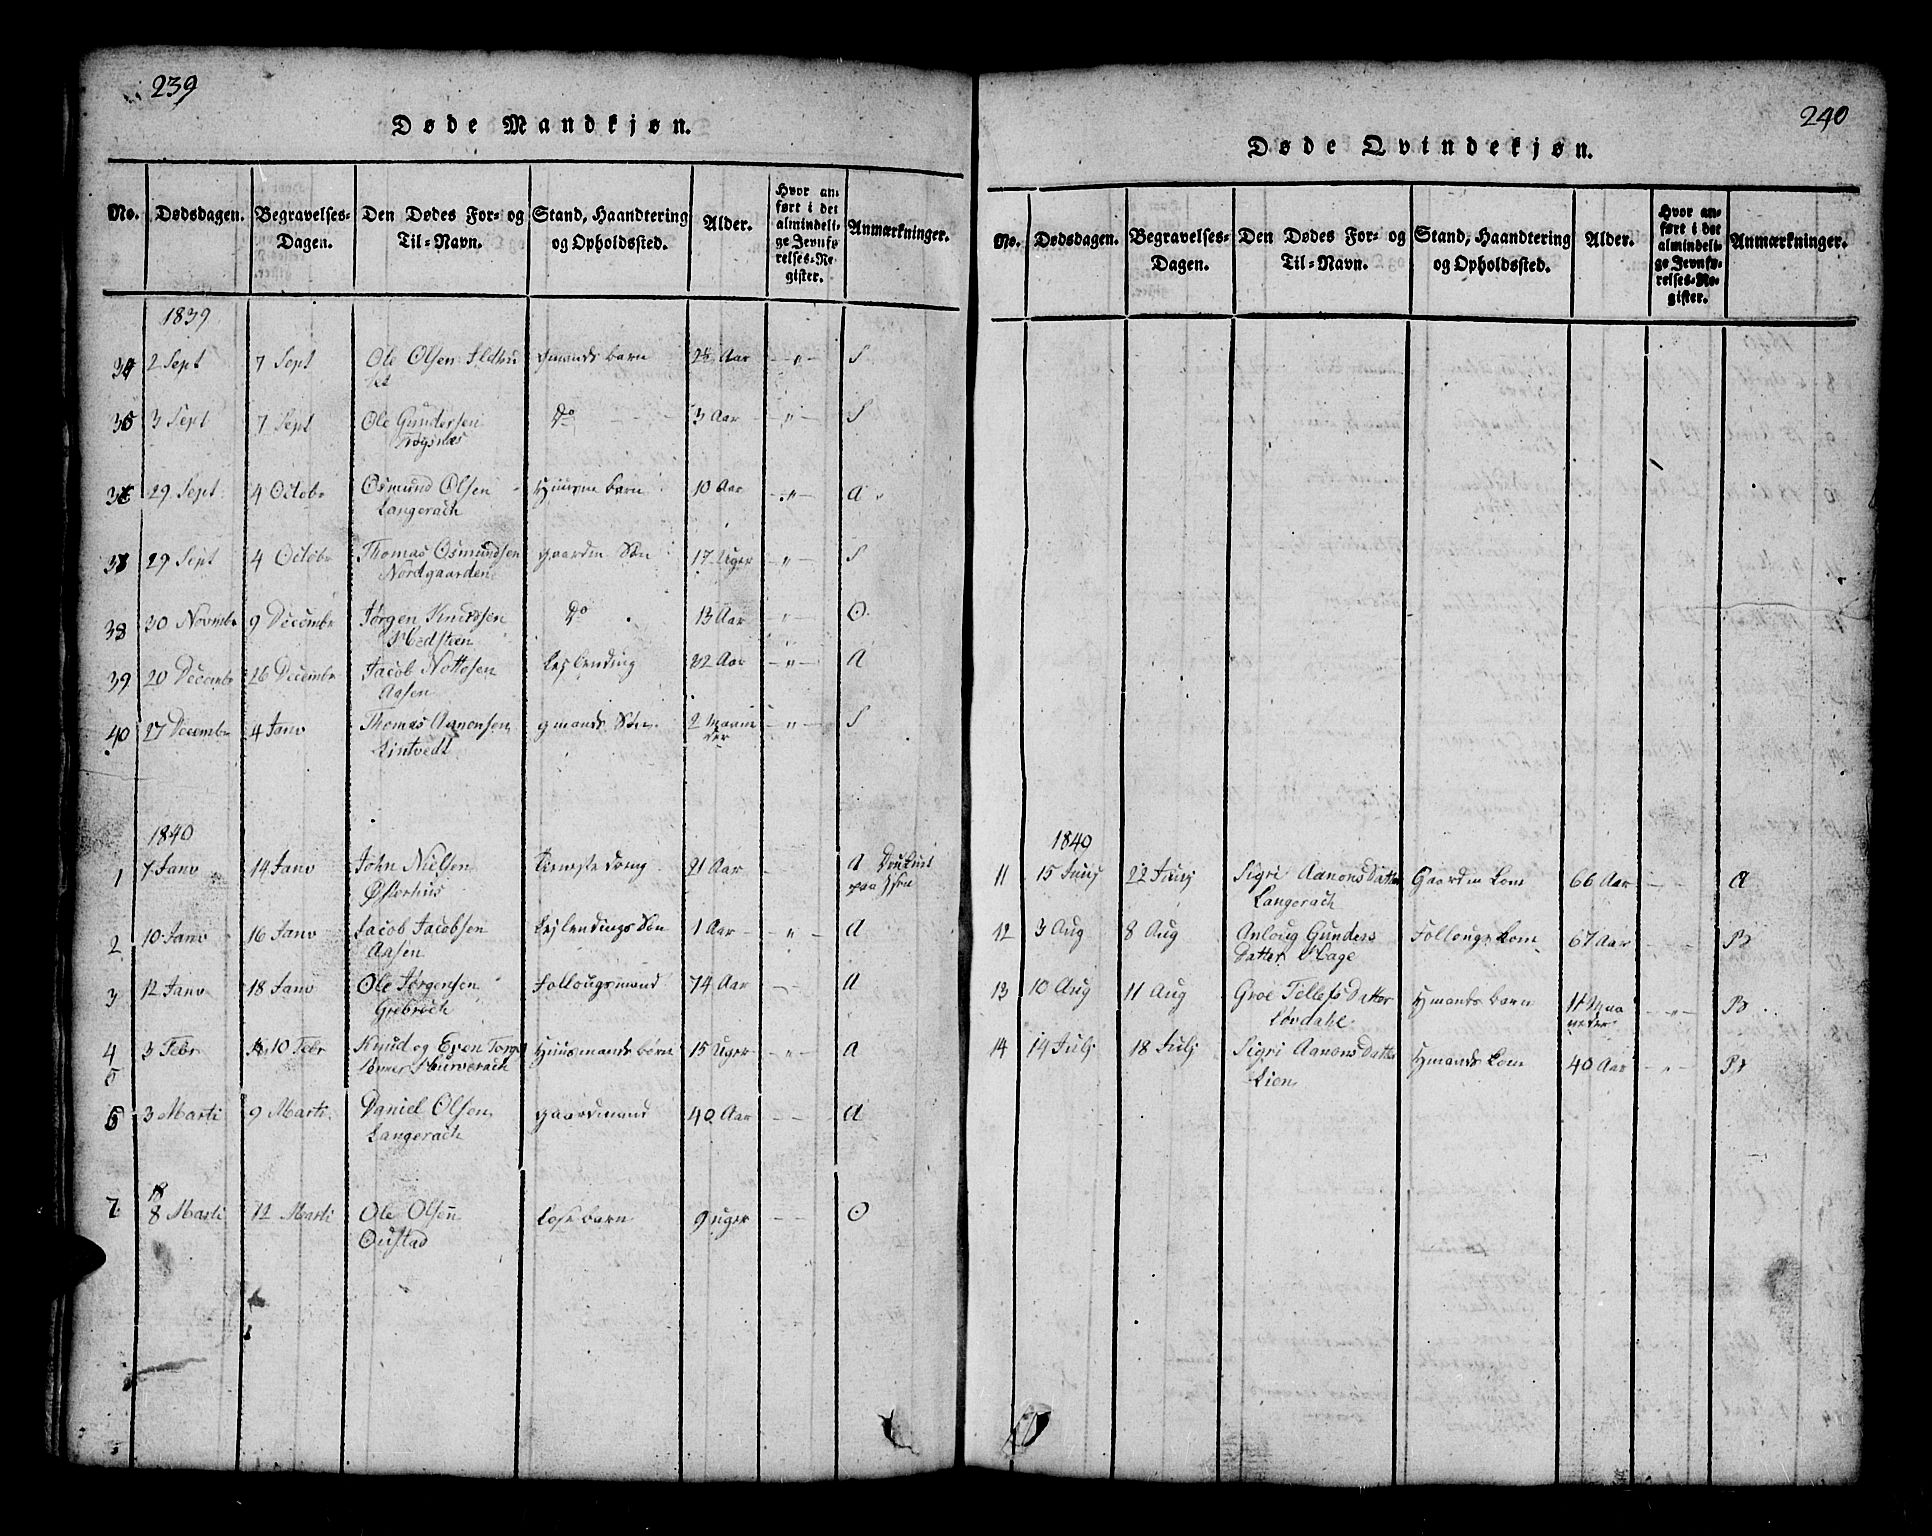 239
Døde Mandkjøn.
No. Dødsdagen. Begravelses-Dagen. Den Dødes For- og Til-Navn. Stand, Haandtering og Opholdssted. Alder. Hvor anført i det almindelige Jevnførelses-Register. Anmærkninger.
1839
34 2 Sept 7 Sept Ole Olsen barn 2½ Aar - " - S
35 3 Sept 7 Sept Ole Gundersen Do 3 Aar - " - S
36 29 Sept 4 Octobr Osmund Olsen barn 10 Aar - " - A
Langerach
37 29 Sept 4 Octobr Thomas Osmundsen gaardm Søn 17 Uger - " - S
Nordgaarden
38 30 Novmbr 9 Decembr Jørgen Knudsen Do 13 Aar " O.
39 20 Decembr 26 Decembr Jacob Nottosen Lejlending 22 Aar - " - A
Aasen
40 27 Decembr 4 Janv Thomas Aanonsen gmands Søn 2 Maane - " - S
Lintvedt der
1840
1 7 Janv 14 Janv John Nielsen Tieneste 21 Aar - A
Østerhus paa
2 10 Janv 16 Janv Jacob Jacobsen Lejlendings Søn 1 Aar - " - A
Aasen
3 12 Janv 18 Janv Ole Jørgensen Follougsmand 74 Aar - A
Grebroch
4 3 Febr 10 Febr Knud og Even Huusmands børn 15 Uger - " - A
5
6 3 Marti 9 Marti Daniel Olsen gaardmand 40 Aar - - A
Langerach
18
7 8 Marti 12 Marti Ole Olsen barn 9 uger - - O
Oustad
240
Døde Qvindekjøn.
No. Dødsdagen. Begravelses-Dagen. Den Dødes For- og Til-Navn. Stand, Haandtering og Opholdssted. Alder. Hvor anført i det almindelige Jevnførelses-Register. Anmærkninger.
1840
11 15 Junj 22 Junj Sigri AanonsDatter Gaardm Kone 66 Aar - - A
Langerach
12 3 Aug 8 Aug Anloug Gunders Follougs Kone 67 Aar
Datter Hage
13 10 Aug 11 Aug Groe TellefsDatter Hmands barn 11 Maa
Løvdahl neder
14 14 Julj 18 Julj Sigri AanonsDatter Hmands Kone 40 Aar - " -
Lien